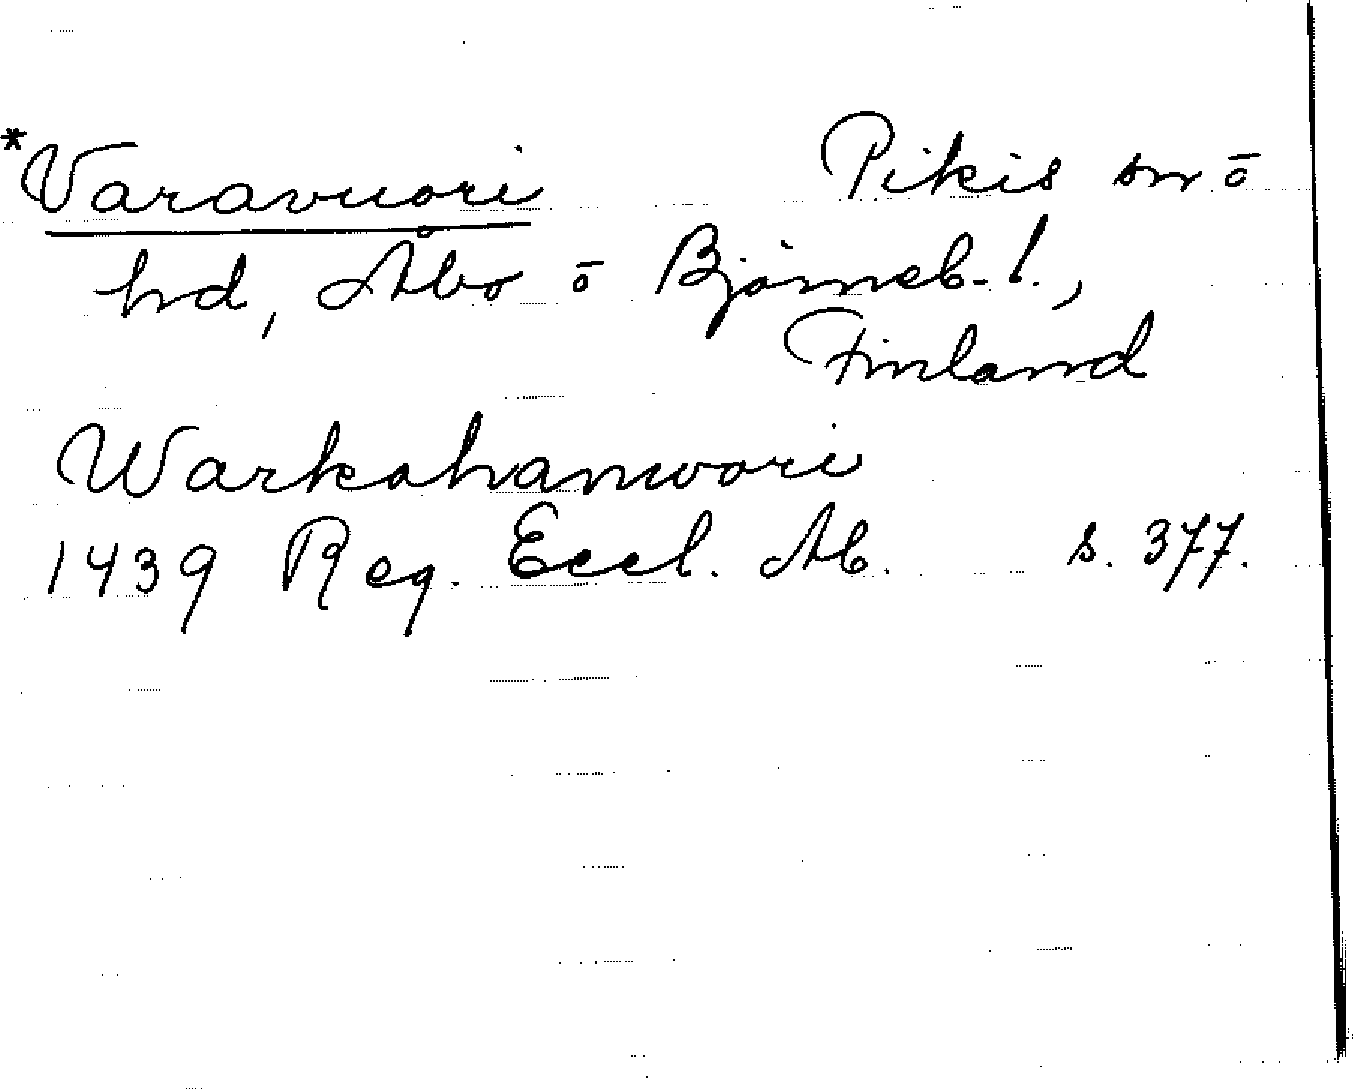 *Varavuori Pikis sn ō
hd, Åbo ō Björneb. l.,
Finland
Warkahanwori
1439 Reg. Eccl. Ab. s. 377.